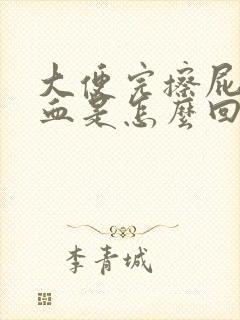 大便完擦屁
血是怎麼回
李青城